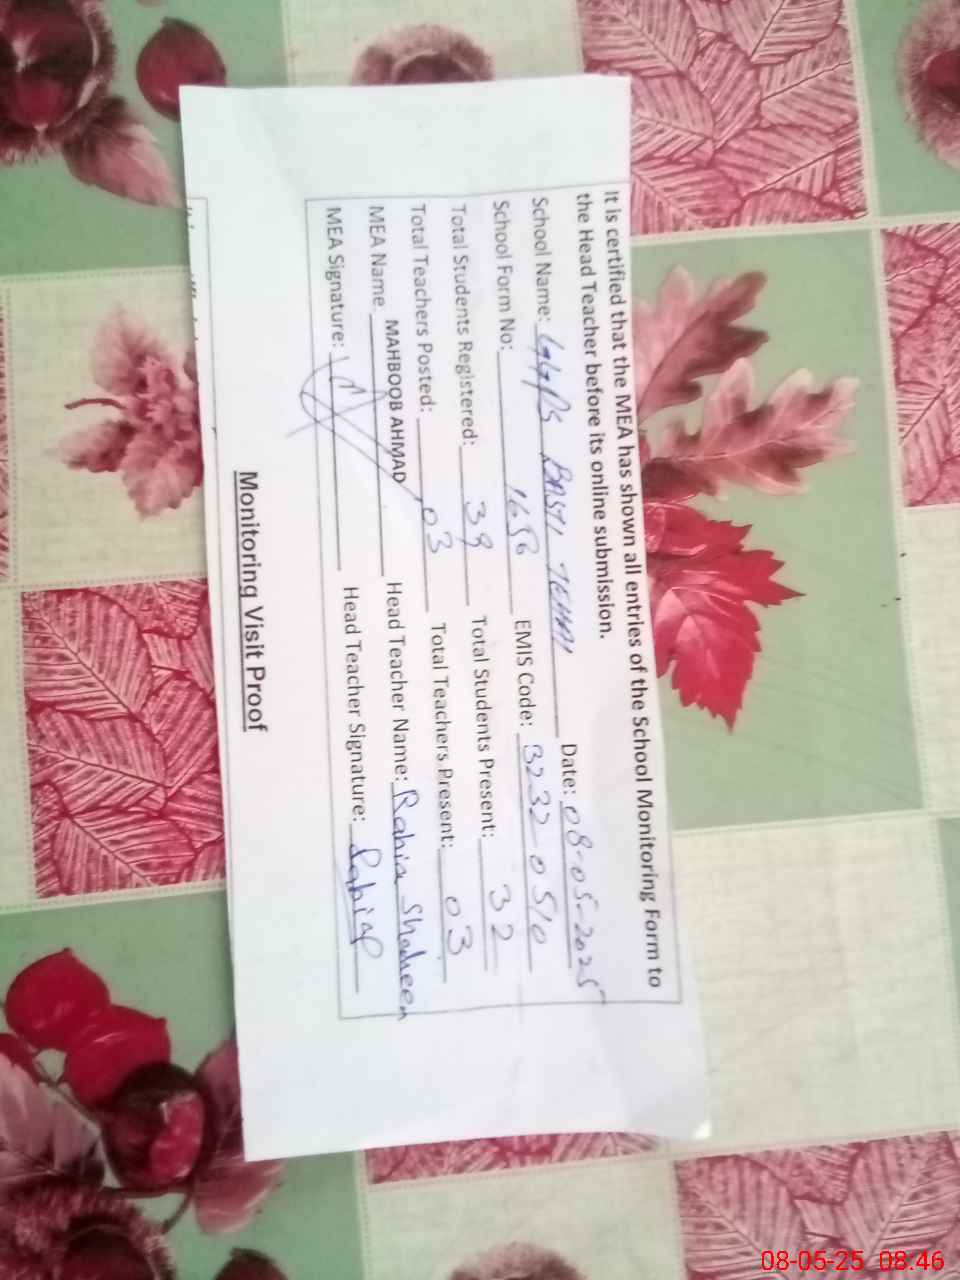 It is certified that the MEA has shown all entries of the School Monitoring Form to
the Head Teacher before its online submission.
Date: 08-05-2025
School Name: BASTI
School Form No: 1656 EMIS Code: 3232-0510
Total Students Registered: 39 Total Students Present: 32
Total Teachers Posted: 03 Total Teachers Present: 03
MEA Name MAHBOOB AHMAD Head Teacher Name: Rabia Shaheen
MEA Signature: Head Teacher Signature:
Monitoring Visit Proof
08-05-25 08:46